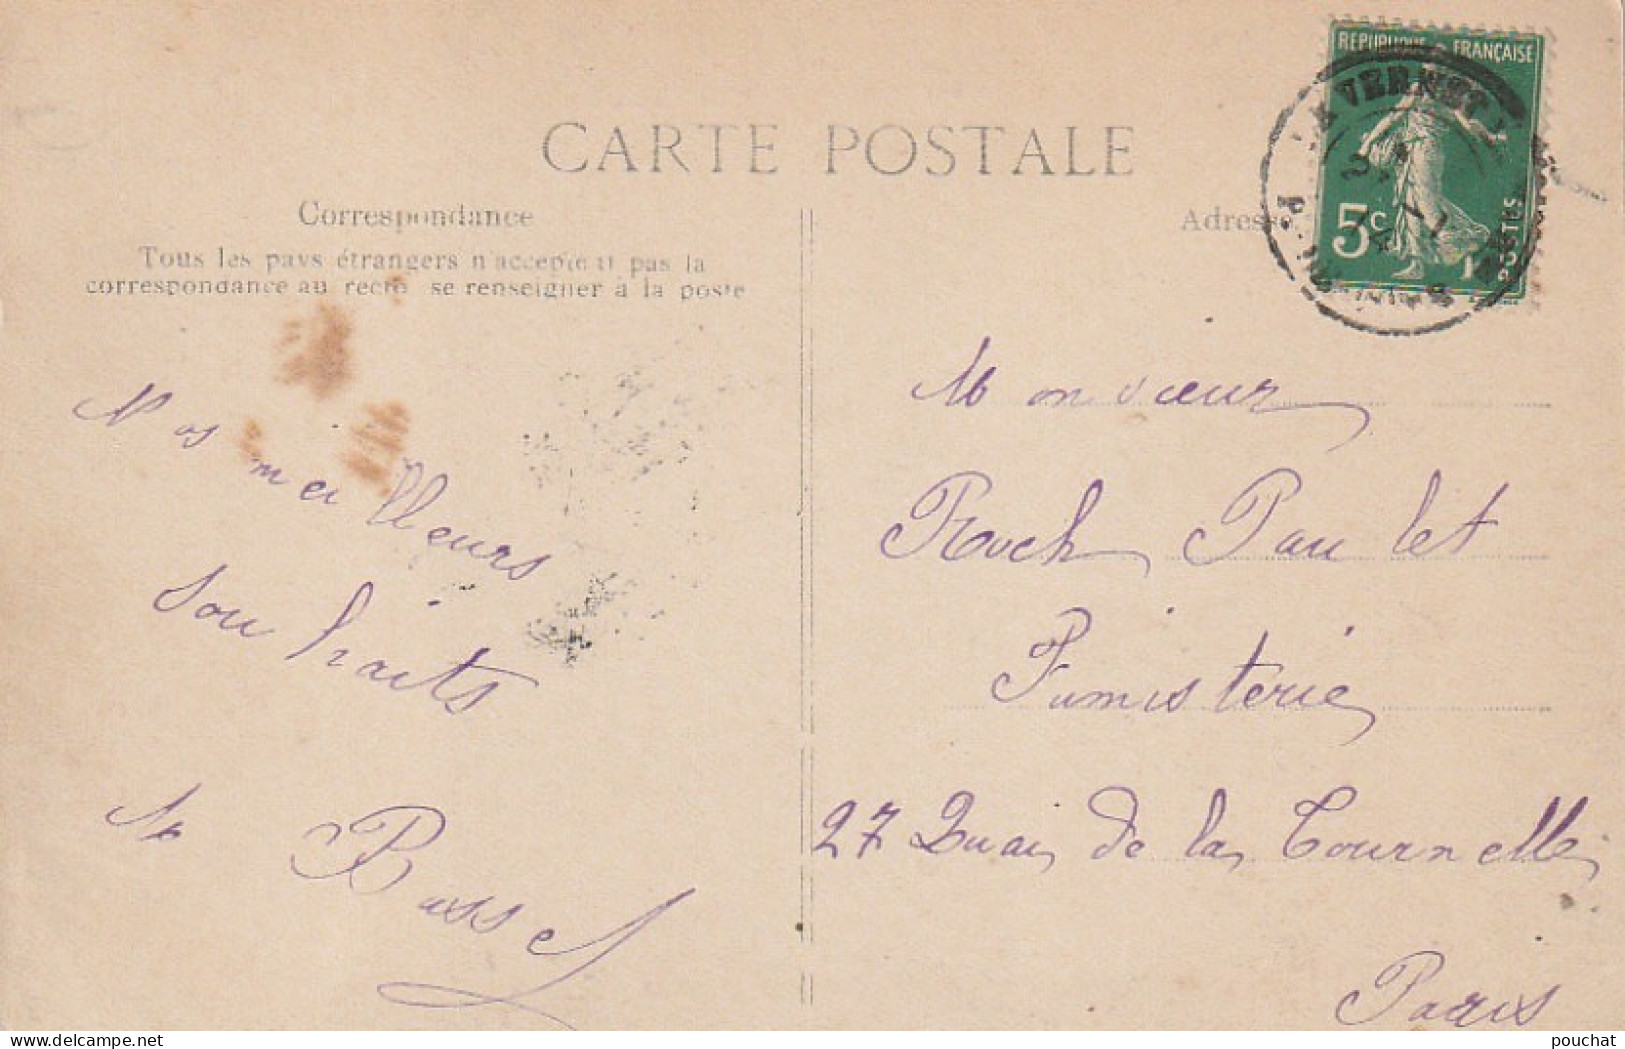 CARTE POSTALE
Correspondance
Tous les pays étrangers n'acceptent pas la
correspondance au recto, se renseigner à la poste
Nos
meilleurs
souhaits
Bassel
Adresse
REPUBLIQUE FRANÇAISE
5c
POSTES
LE VERNET
Monsieur
Roch Paulet
Fumisterie
27 Quai de la Tournelle
Paris
delcampe.net
pouchat